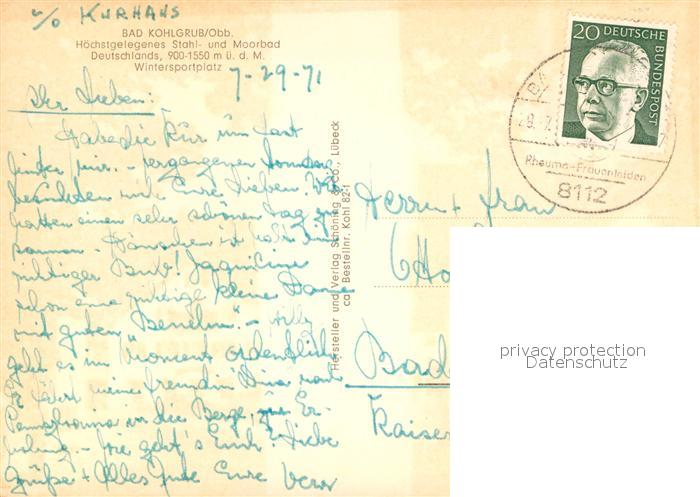 c/o KURHAUS
BAD KOHLGRUB/Obb.
Höchstgelegenes Stahl- und Moorbad
Deutschlands, 900-1550 m ü. d. M.
Wintersportplatz
7-29-71
Ihr Lieben:
Habe die Kur nun fast
hinter mir. - vergangenen Sonntag
besuchten mich Eure Lieben. Wir
hatten einen sehr schönen Tag zu-
sammen - Hänschen ist
richtiger Bub! Jaqueline
schon eine richtige kleine Dame
mit gutem "Benehm". - 
geht es im Moment ordentlich
Es fährt meine Freundin von
Pennsylvania in die Berge, zur Er-
holung. - Wie geht's Euch? Liebe
Grüße + Alles Gute Eure
Herrn + Frau
6
Bad
Kaiser
Hersteller und Verlag Schöning & Co., Lübeck
Bestellnr. Kohl 82-1
20 DEUTSCHE BUNDESPOST
BA
Rheuma-Frauenleiden
8112
privacy protection
Datenschutz